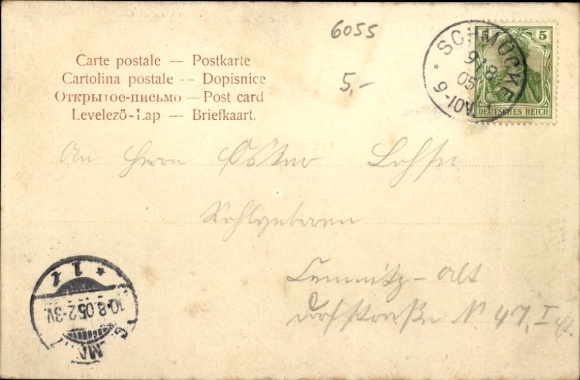 6055
5,-
5 5
SCHMÜCKE
9/8
05
9-10V.
DEUTSCHES REICH
Carte postale — Postkarte
Cartolina postale — Dopisnice
Открытое-письмо — Post card
Levelező-Lap — Briefkaart.
An Herrn Oskar Lohse
Wohlgeboren
Chemnitz - Alt
Dorfstraße N 47, I
* 1 f
10.8.05 2-3V.